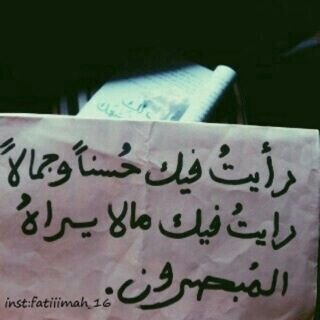 رأيتُ فيك حُسناً وجمالاً
رايتُ فيك مالا يراهُ
المُبصرون.
inst:fatiiimah_16